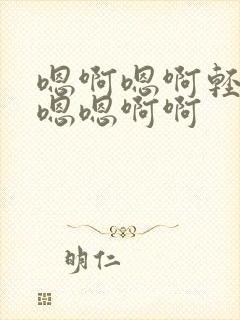 嗯啊嗯啊軽
嗯嗯啊啊
明仁